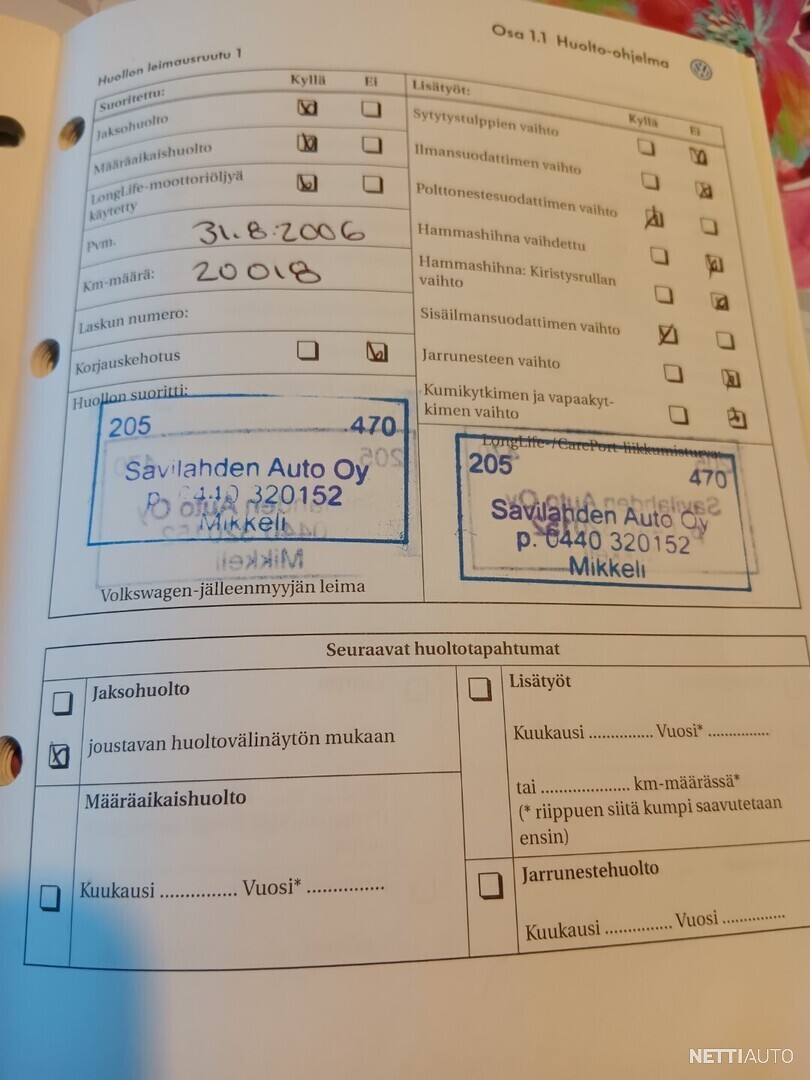 Osa 1.1 Huolto-ohjelma
Huollon leimausruutu 1
Suoritettu: Kyllä Ei
Jaksohuolto
Määräaikaishuolto
LongLife-moottoriöljyä
käytetty
Pvm. 31.8.2006
Km-määrä: 20018
Laskun numero:
Korjauskehotus
Huollon suoritti:
205 470
Savilahden Auto Oy
p. 0440 320152
Mikkeli
Volkswagen-jälleenmyyjän leima
Lisätyöt:
Kyllä Ei
Sytytystulppien vaihto
Ilmansuodattimen vaihto
Polttonestesuodattimen vaihto
Hammashihna vaihdettu
Hammashihna: Kiristysrullan
vaihto
Sisäilmansuodattimen vaihto
Jarrunesteen vaihto
Kumikytkimen ja vapaakyt-
kimen vaihto
LongLife-/CarePort-liikkumisturva:
205 470
Savilahden Auto Oy
p. 0440 320152
Mikkeli
Seuraavat huoltotapahtumat
Jaksohuolto
joustavan huoltovälinäytön mukaan
Määräaikaishuolto
Kuukausi .............. Vuosi* ..............
Lisätyöt
Kuukausi .............. Vuosi* .............
tai .................... km-määrässä*
(* riippuen siitä kumpi saavutetaan
ensin)
Jarrunestehuolto
Kuukausi ............... Vuosi .............
NETTIAUTO